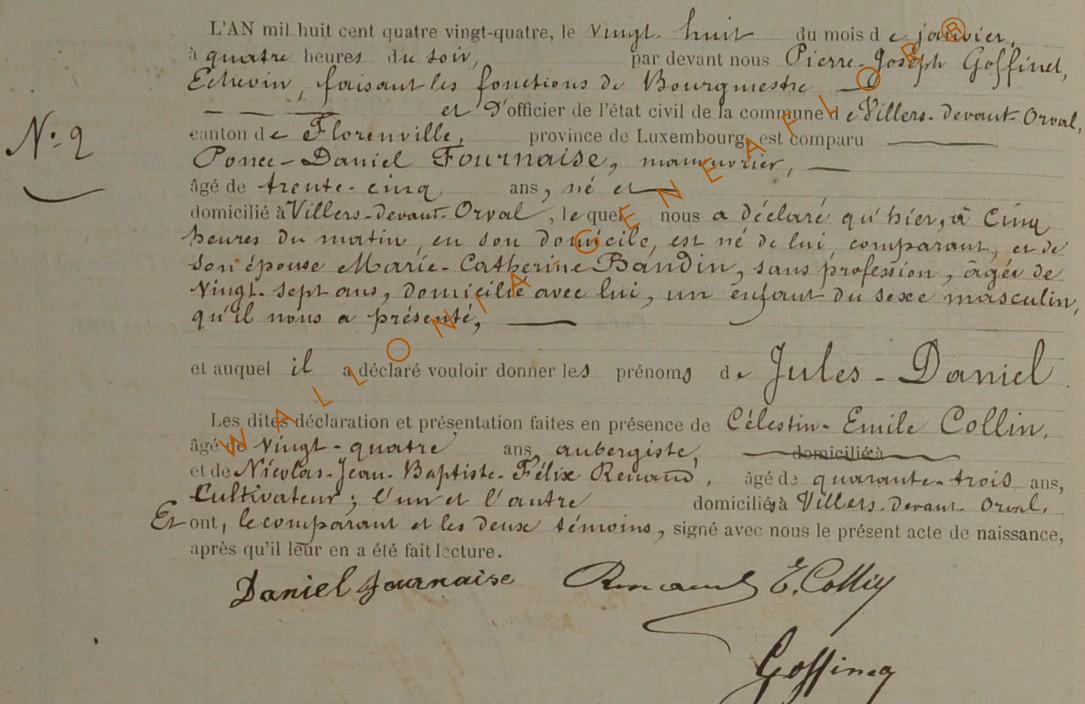 L'AN mil huit cent quatre vingt-quatre, le vingt huit du mois de janvier,
à quatre heures du soir, par devant nous Pierre-Joseph Goffinet,
Echevin, faisant les fonctions de Bourgmestre
et d'officier de l'état civil de la commune de Villers-devant-Orval,
canton de Florenville, province de Luxembourg est comparu
N° 2
Ponce-Daniel Fournaise, manouvrier,
âgé de trente-cinq ans, né et
domicilié à Villers-devant-Orval, lequel nous a déclaré qu'hier, à cinq
heures du matin, en son domicile, est né de lui comparant, et de
son épouse Marie-Catherine Baudin, sans profession, âgée de
vingt-sept ans, domicilié avec lui, un enfant du sexe masculin,
qu'il nous a présenté,
et auquel il a déclaré vouloir donner les prénoms de Jules-Daniel
Les dites déclaration et présentation faites en présence de Célestin-Emile Collin,
âgé de vingt-quatre ans, aubergiste, domicilié à
et de Nicolas-Jean-Baptiste-Félix Renaud, âgé de quarante-trois ans,
Cultivateur; l'un et l'autre domiciliés à Villers-devant-Orval.
Et ont, le comparant et les deux témoins, signé avec nous le présent acte de naissance,
après qu'il leur en a été fait lecture.
Daniel Fournaise Renaud E. Collin
Goffinet
WALLONIA GENEA FLORBB